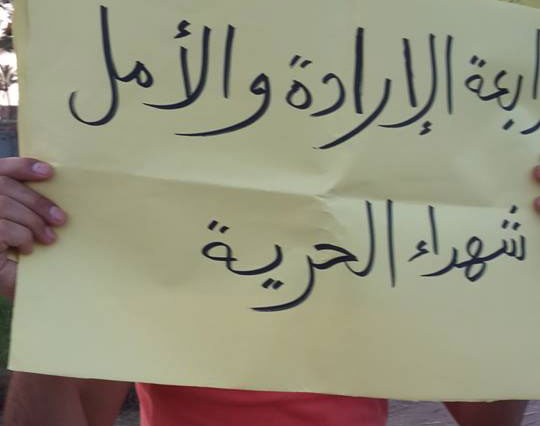 رابعة الإرادة والأمل
شهداء الحرية